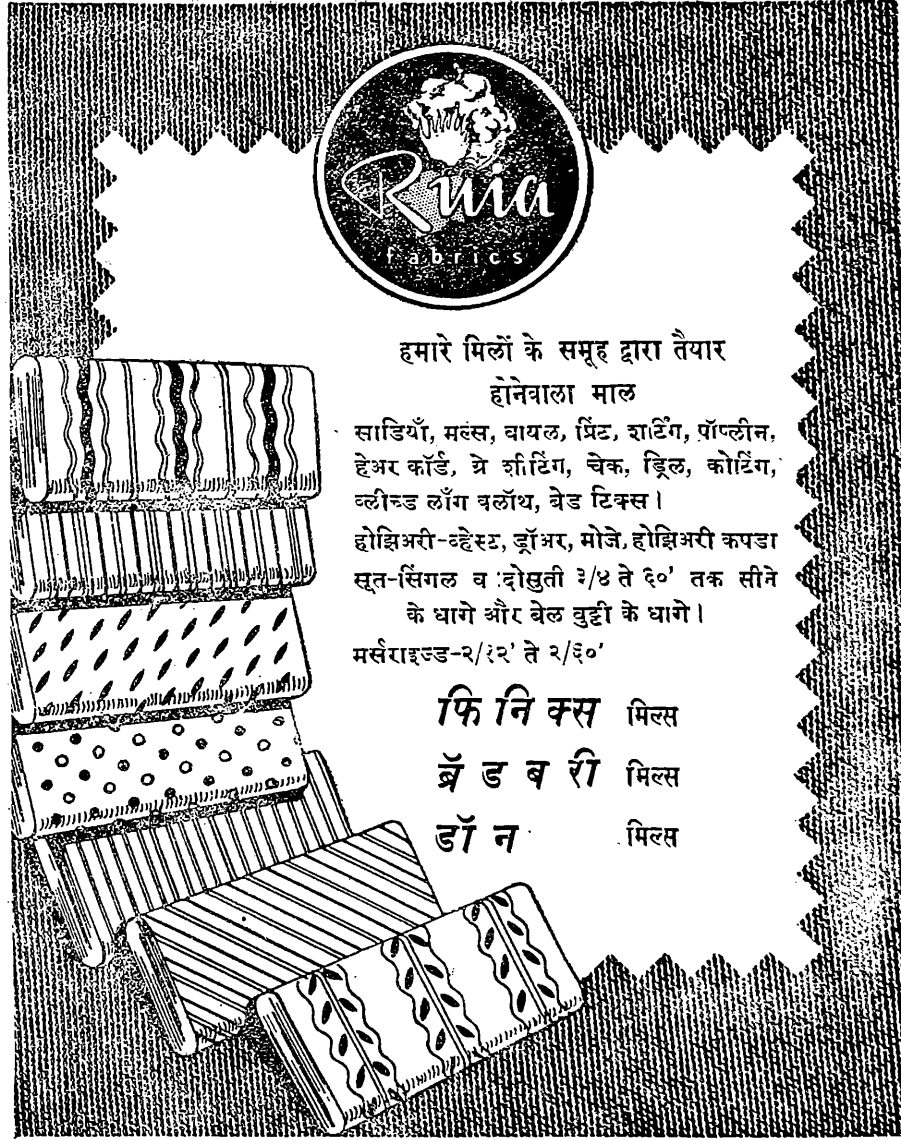 Ruia
fabrics
हमारे मिलों के समूह द्वारा तैयार
होनेवाला माल
साडियाँ, मल्स, वायल, प्रिंट, शर्टिंग, पॉप्लीन,
हेअर कॉर्ड, ग्रे शीटिंग, चेक, ड्रिल, कोटिंग,
ब्लीच्ड लाँग क्लॉथ, बेड टिक्स।
होझिअरी-व्हेस्ट, ड्रॉअर, मोजे, होझिअरी कपडा
सूत-सिंगल व दोसुती ३/४ ते ६०' तक सीने
के धागे और बेल बुट्टी के धागे।
मर्सराइज्ड-२/१२' ते २/६०'
फिनिक्स मिल्स
ब्रॅडबरी मिल्स
डॉन मिल्स